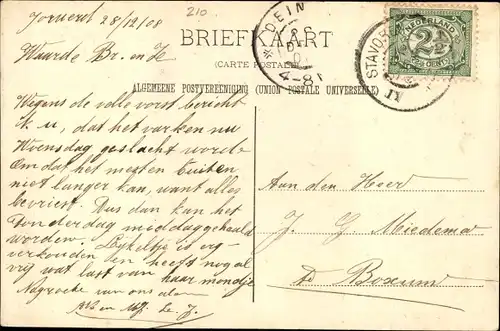 Jorwerd 28/12/08
210
Waarde Br. en Z
BRIEFKAART
(CARTE POSTALE)
ALGEMEENE POSTVEREENIGING (UNION POSTALE UNIVERSELLE)
DEIN
4-8
STAVOR
IV
NEDERLAND
2½
CENT
Wegens de volle vorst bericht
u, dat het varken nu
Woensdag geslacht worde
Om dat het mesten buiten
niet langer kan, want alles
bevriest. Dus dan kan het
Donderdag middag gehaald
worden. Eykeltje is erg
verkouden en heeft nogal
vrij wat last van haar mondje
van ons allen
Aan den Heer
J. G. Miedema
Boxum